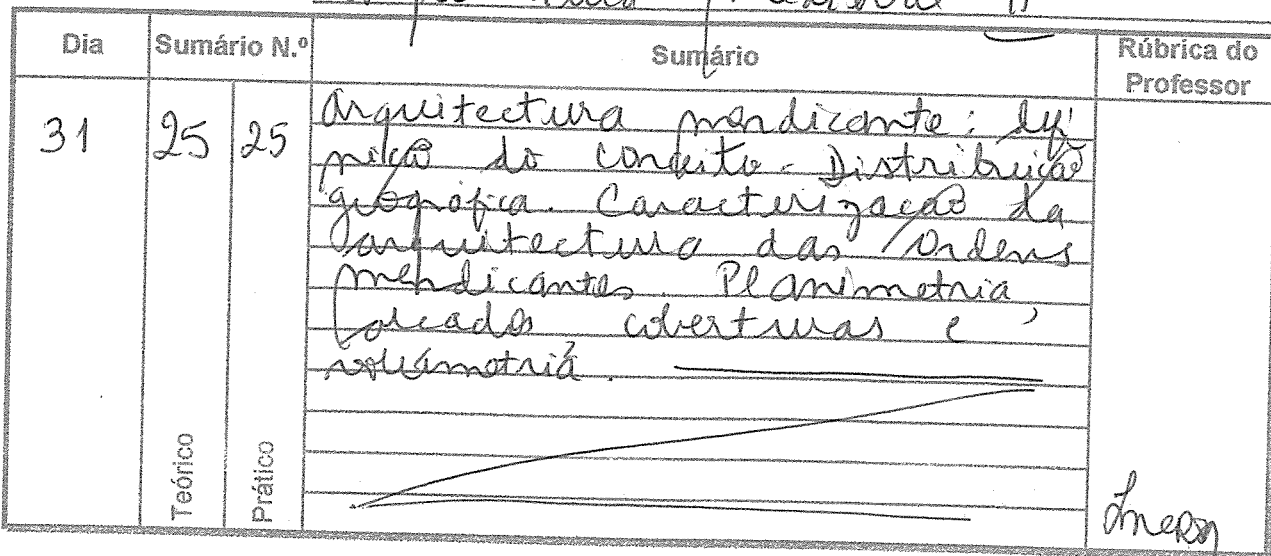 Dia Sumário N.º Sumário Rúbrica do
Professor
31 25 25 Arquitectura mendicante: defi
nição do conceito. Distribuição
geográfica. Caracterização da
arquitectura das Ordens
mendicantes. Planimetria,
alçados coberturas e
volumetria.
Teórico Prático